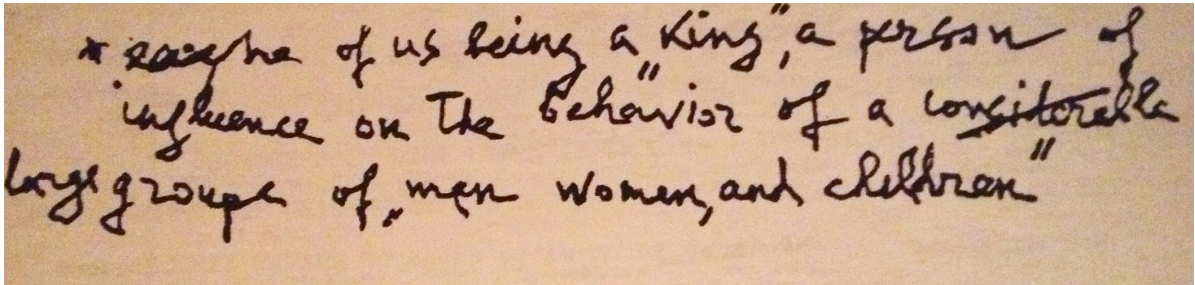 of us being a "King", a person of
influence on the "behavior of a considerable
large groupe of „men women, and children"